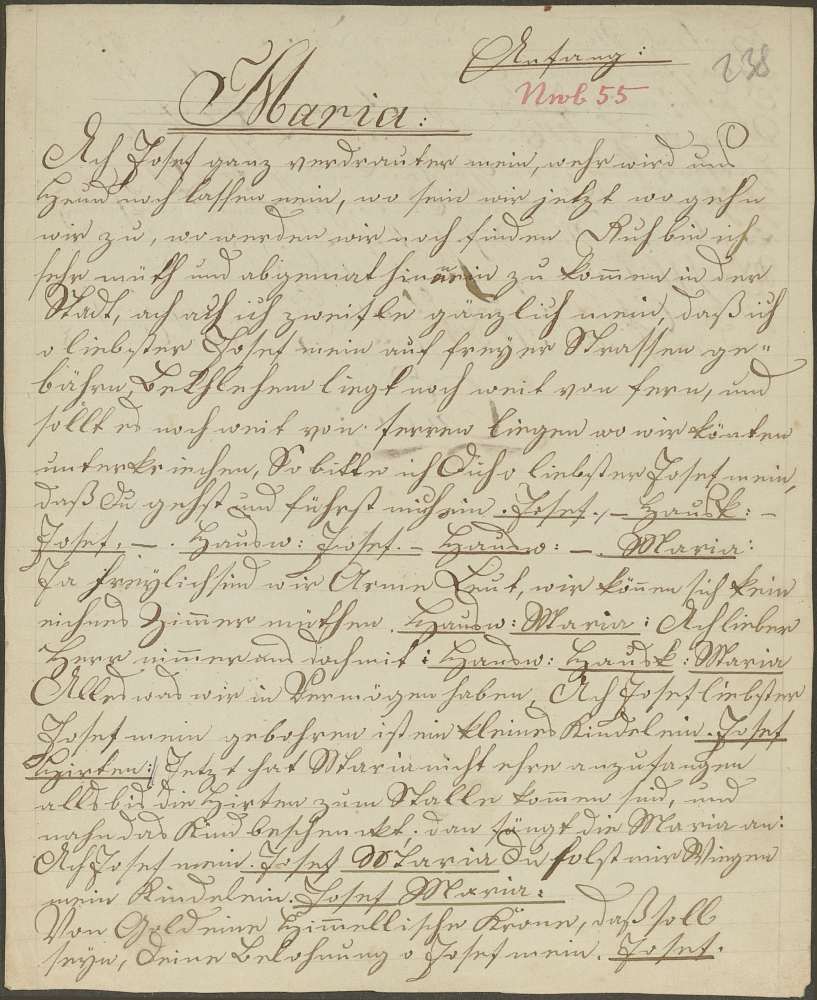 Anfang:
238
Nwb 55
Maria:
Ach Josef ganz verdrauter mein, wehr wird uns
Heund noch lassen nein, wo sein wir jetzt wo gehn
wir zu, wo werden wir noch finden Ruh bin ich
sehr müth und abgemat hinnein zu kom̄en in der
Stadt, ach ach ich zweifle gänzlich mein, daß ich
o liebster Josef mein auf freyer Strassen ge-
bährn, Bethlehem liegt noch weit von fern, und
sollt es noch weit von ferren liegen wo wir könten
unterkriechen, So bitte ich Dich o liebster Josef mein,
daß Du gehst und führst mich ein. Josef. – Hausk: –
Josef. – . Hausw: Josef. – Hausw: – . Maria:
Ja freylich sind wir Arme Leut, wir kön̄en sich kein
eichnes Zim̄er müthen. Hausw: Maria: Ach lieber
Herr nim̄er uns doch mit: Hausw: Hausk: Maria
Alles was wir in Vermögen haben, Ach Josef liebster
Josef mein gebohren ist ein kleines Kindelein. Josef
Hirten: Jetzt hat Maria nicht ehre anzufangen
alls bis die Hirten zum Stalle kom̄en sind, und
nahn das Kind beschenckt. dan fängt die Maria an:
Ach Josef mein. Josef Maria Du solst mir Wiegen
mein Kindelein. Josef Maria:
Von Gold eine Him̄ellische Krone, daß soll
seyn, Deine Belohnung o Josef mein. Josef.